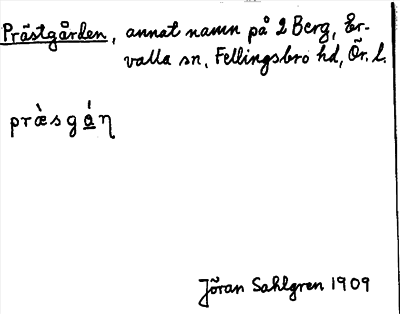 Prästgården, annat namn på 2 Berg, Ær-
valla sn, Fellingsbro hd, Ör. l.
præ̀sgá̱ɳ
Jöran Sahlgren 1909